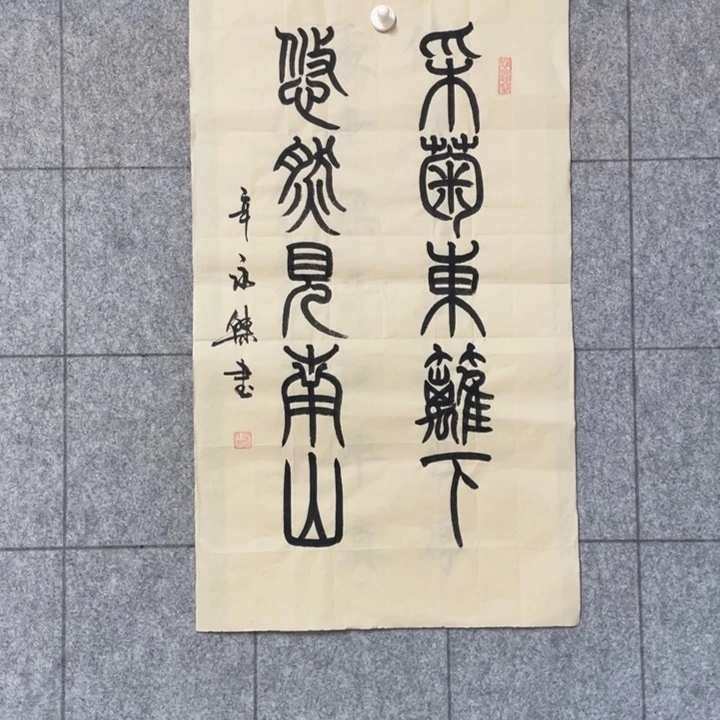 采菊東籬下
悠然見南山
辛永傑書